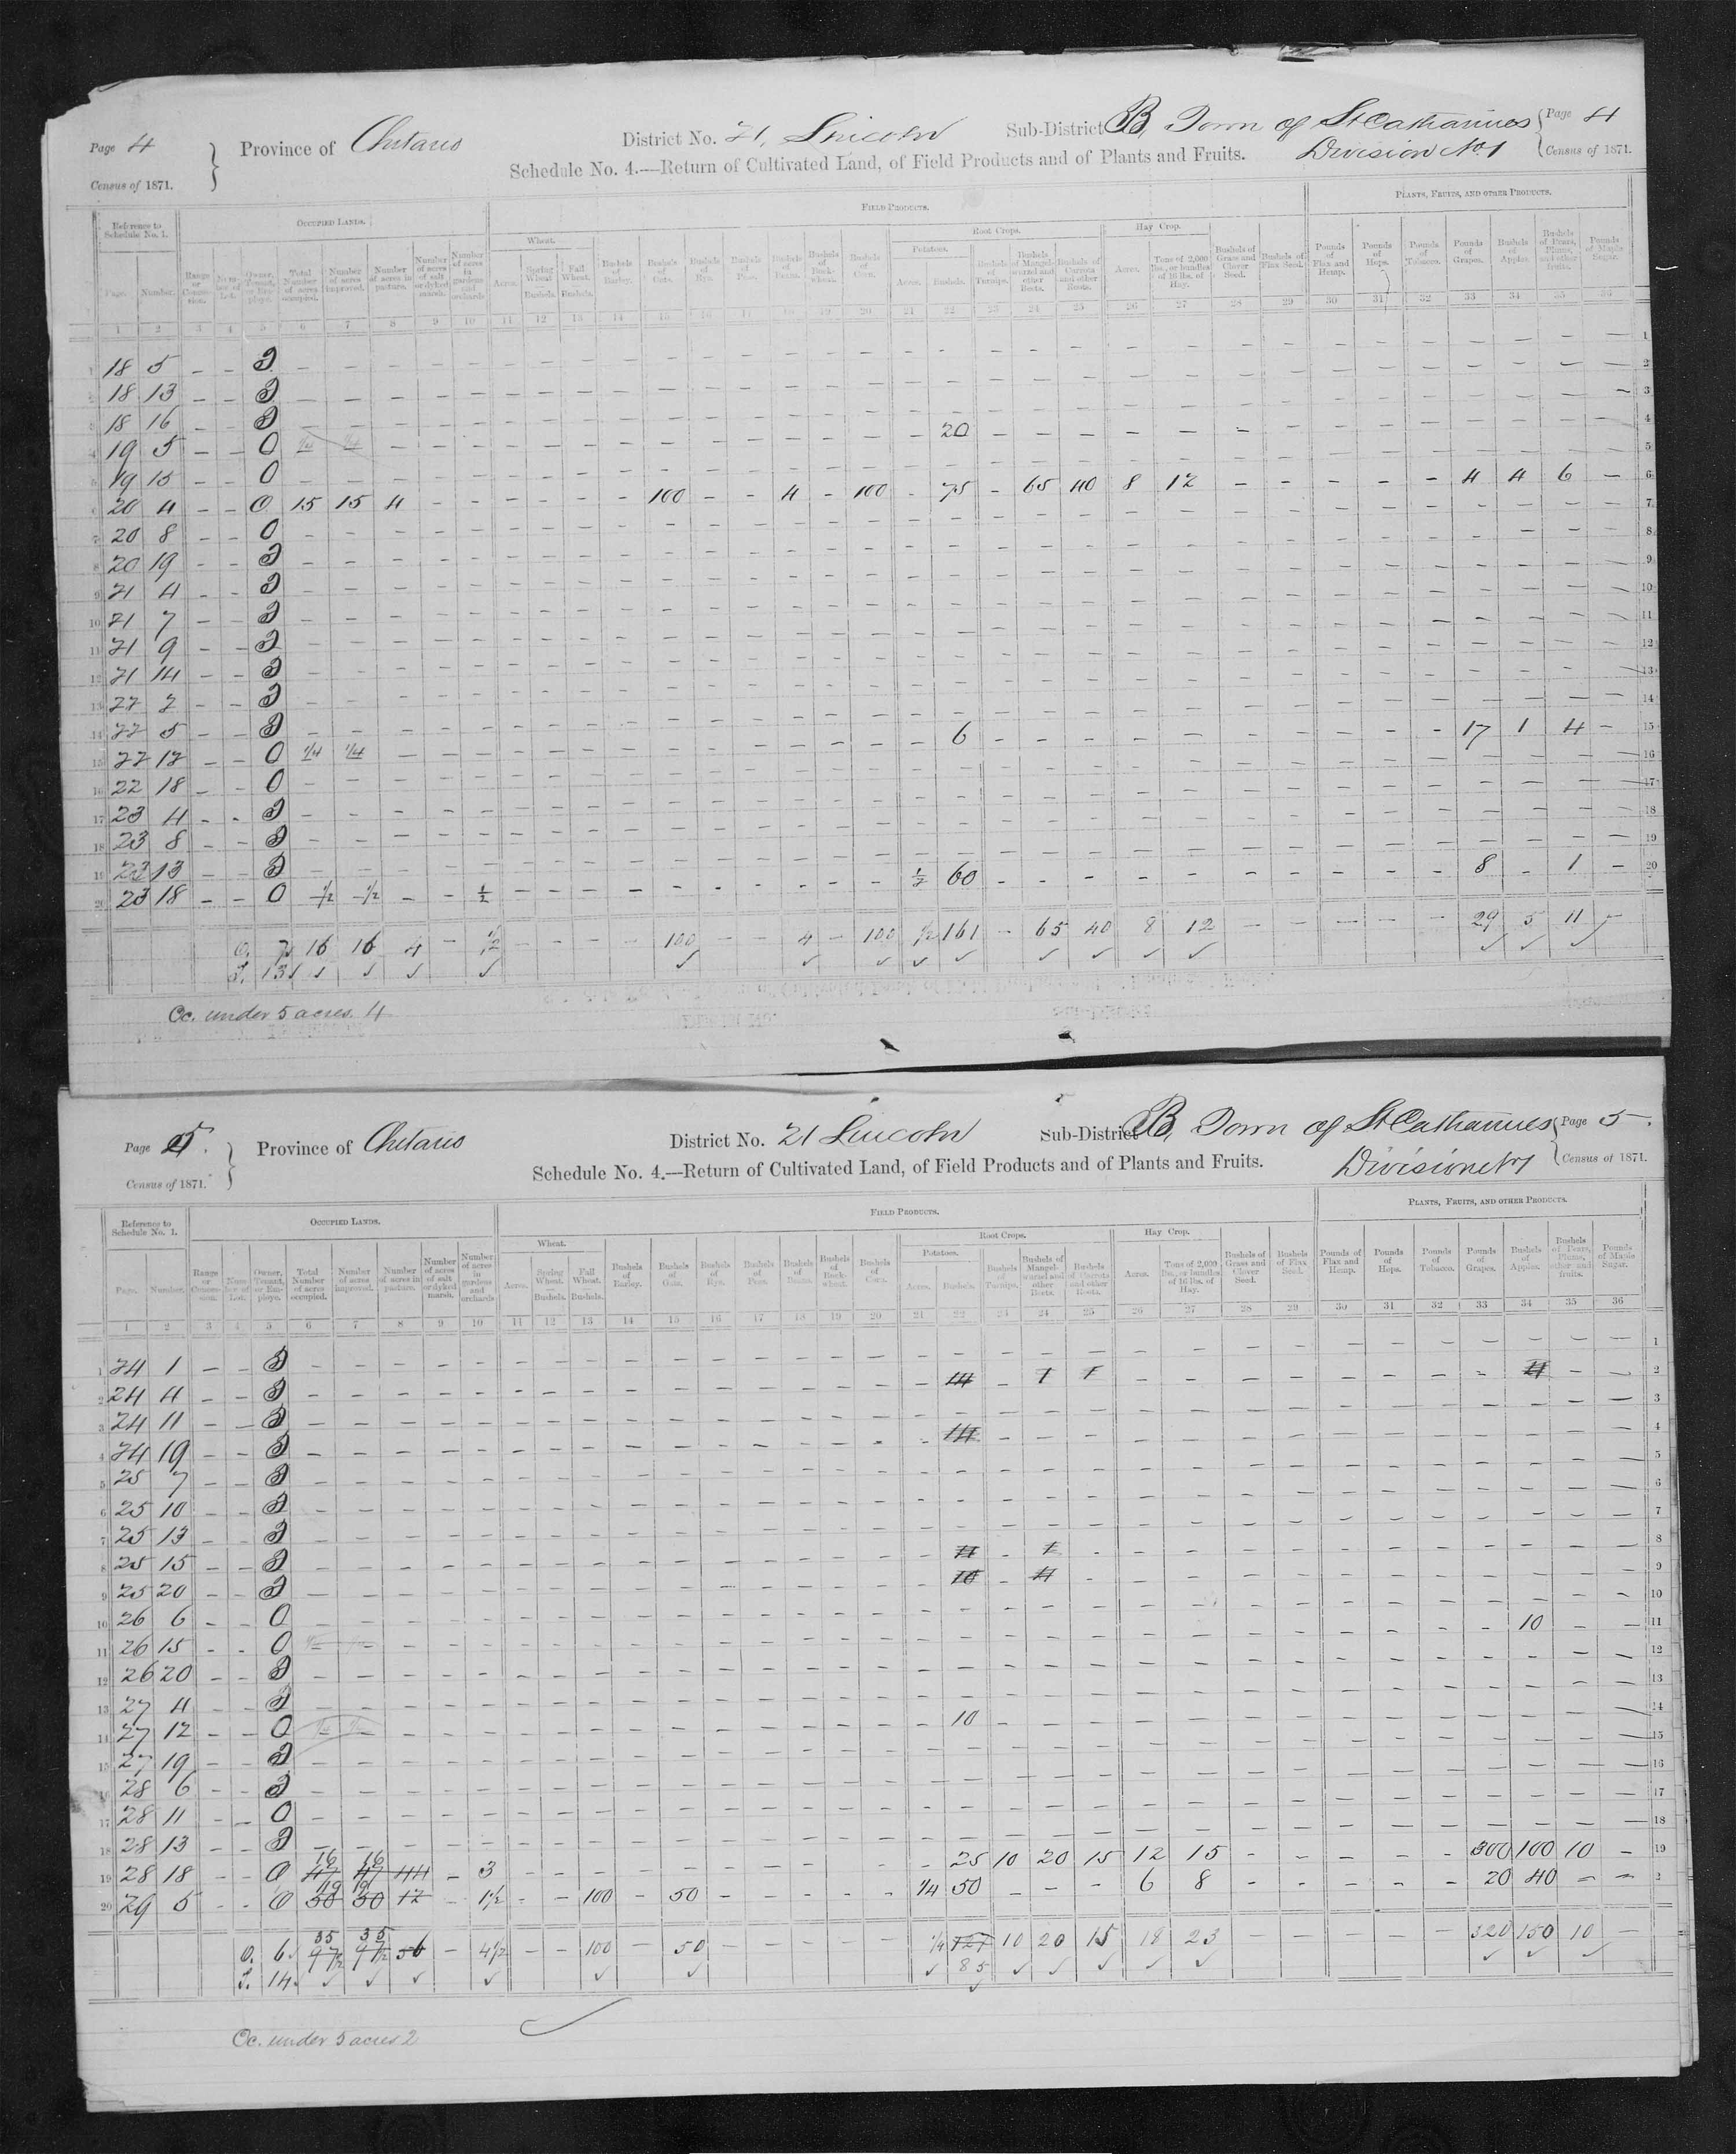 Page 4 } Province of Ontario District No. 21, Lincoln Sub-District B, Town of St Catharines { Page 4
Census of 1871. Schedule No. 4.—Return of Cultivated Land, of Field Products and of Plants and Fruits. Division No 1 Census of 1871.
Reference to Schedule No. 1. OCCUPIED LANDS. FIELD PRODUCTS. PLANTS, FRUITS, AND OTHER PRODUCTS.
Wheat. Root Crops. Potatoes. Hay Crop.
Page. Number. Range or Concession. Number of Lot. Owner, Tenant, or Employe. Total Number of acres occupied. Number of acres improved. Number of acres in pasture. Number of acres of salt or dyked marsh. Number of acres in gardens and orchards Acres. Spring Wheat — Bushels. Fall Wheat. Bushels. Bushels of Barley. Bushels of Oats. Bushels of Rye. Bushels of Peas. Bushels of Beans. Bushels of Buckwheat. Bushels of Corn. Acres. Bushels. Bushels of Turnips. Bushels of Mangel-wurzel and other Beets. Bushels of Carrots and other Roots. Acres. Tons of 2,000 lbs., or bundles of 16 lbs. of Hay. Bushels of Grass and Clover Seed. Bushels of Flax Seed. Pounds of Flax and Hemp. Pounds of Hops. Pounds of Tobacco. Pounds of Grapes. Bushels of Apples. Bushels of Pears, Plums, and other fruits. Pounds of Maple Sugar.
1 2 3 4 5 6 7 8 9 10 11 12 13 14 15 16 17 18 19 20 21 22 23 24 25 26 27 28 29 30 31 32 33 34 35 36
1 18 5 – – T 1
2 18 13 – – T 2
3 18 16 – – T 3
4 19 5 – – O 1/4 1/4 20 4
5 19 15 – – O 5
6 20 4 – – O 15 15 4 100 4 100 75 65 40 8 12 4 4 6 6
7 20 8 – – O 7
8 20 19 – – T 8
9 21 4 – – T 9
10 21 7 – – T 10
11 21 9 – – T 11
12 21 14 – – T 12
13 22 2 – – T 13
14 22 5 – – T 14
15 22 12 – – O 1/4 1/4 6 17 1 4 15
16 22 18 – – O 16
17 23 4 – – T 17
18 23 8 – – T 18
19 23 13 – – T 19
20 23 18 – – O 1/2 1/2 – – 1/2 1/2 60 8 – 1 20
O. 7 16 16 4 – 1/2 100 4 – 100 1/2 161 – 65 40 8 12 29 5 11
T. 13
Oc. under 5 acres. 4
Page 5. } Province of Ontario District No. 21 Lincoln Sub-District B, Town of St Catharines { Page 5.
Census of 1871. Schedule No. 4.—Return of Cultivated Land, of Field Products and of Plants and Fruits. Division No 1 Census of 1871.
Reference to Schedule No. 1. OCCUPIED LANDS. FIELD PRODUCTS. PLANTS, FRUITS, AND OTHER PRODUCTS.
Wheat. Root Crops. Potatoes. Hay Crop.
Page. Number. Range or Concession. Number of Lot. Owner, Tenant, or Employe. Total Number of acres occupied. Number of acres improved. Number of acres in pasture. Number of acres of salt or dyked marsh. Number of acres in gardens and orchards Acres. Spring Wheat. — Bushels. Fall Wheat. Bushels. Bushels of Barley. Bushels of Oats. Bushels of Rye. Bushels of Peas. Bushels of Beans. Bushels of Buckwheat. Bushels of Corn. Acres. Bushels. Bushels of Turnips. Bushels of Mangel-wurzel and other Beets. Bushels of Carrots and other Roots. Acres. Tons of 2,000 lbs., or bundles of 16 lbs. of Hay. Bushels of Grass and Clover Seed. Bushels of Flax Seed. Pounds of Flax and Hemp. Pounds of Hops. Pounds of Tobacco. Pounds of Grapes. Bushels of Apples. Bushels of Pears, Plums, other and fruits. Pounds of Maple Sugar.
1 2 3 4 5 6 7 8 9 10 11 12 13 14 15 16 17 18 19 20 21 22 23 24 25 26 27 28 29 30 31 32 33 34 35 36
1 24 1 – – T 1
2 24 4 – – T 14 – 1 1 4 2
3 24 11 – – T 3
4 24 19 – – T 14 4
5 25 7 – – T 5
6 25 10 – – T 6
7 25 13 – – T 7
8 25 15 – – T 8
9 25 20 – – T 10 – 4 9
10 26 6 – – O 10
11 26 15 – – O 10 11
12 26 20 – – T 12
13 27 4 – – T 13
14 27 12 – – O 10 14
15 27 19 – – T 15
16 28 6 – – T 16
17 28 11 – – O 17
18 28 13 – – T 18
16 16
19 28 18 – – O 47 47 44 – 3 25 10 20 15 12 15 300 100 10 – 19
19 19
20 29 5 – – O 50 50 12 – 1 1/2 – – 100 – 50 1/4 50 – – – 6 8 20 40 – – 2
35 35
O. 6 97 1/2 97 1/2 56 – 4 1/2 – – 100 – 50 1/4 127 10 20 15 18 23 320 150 10 –
T. 14 85
Oc. under 5 acres 2